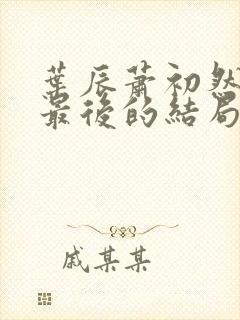 葉辰蕭初然
最後的結局
戚某某